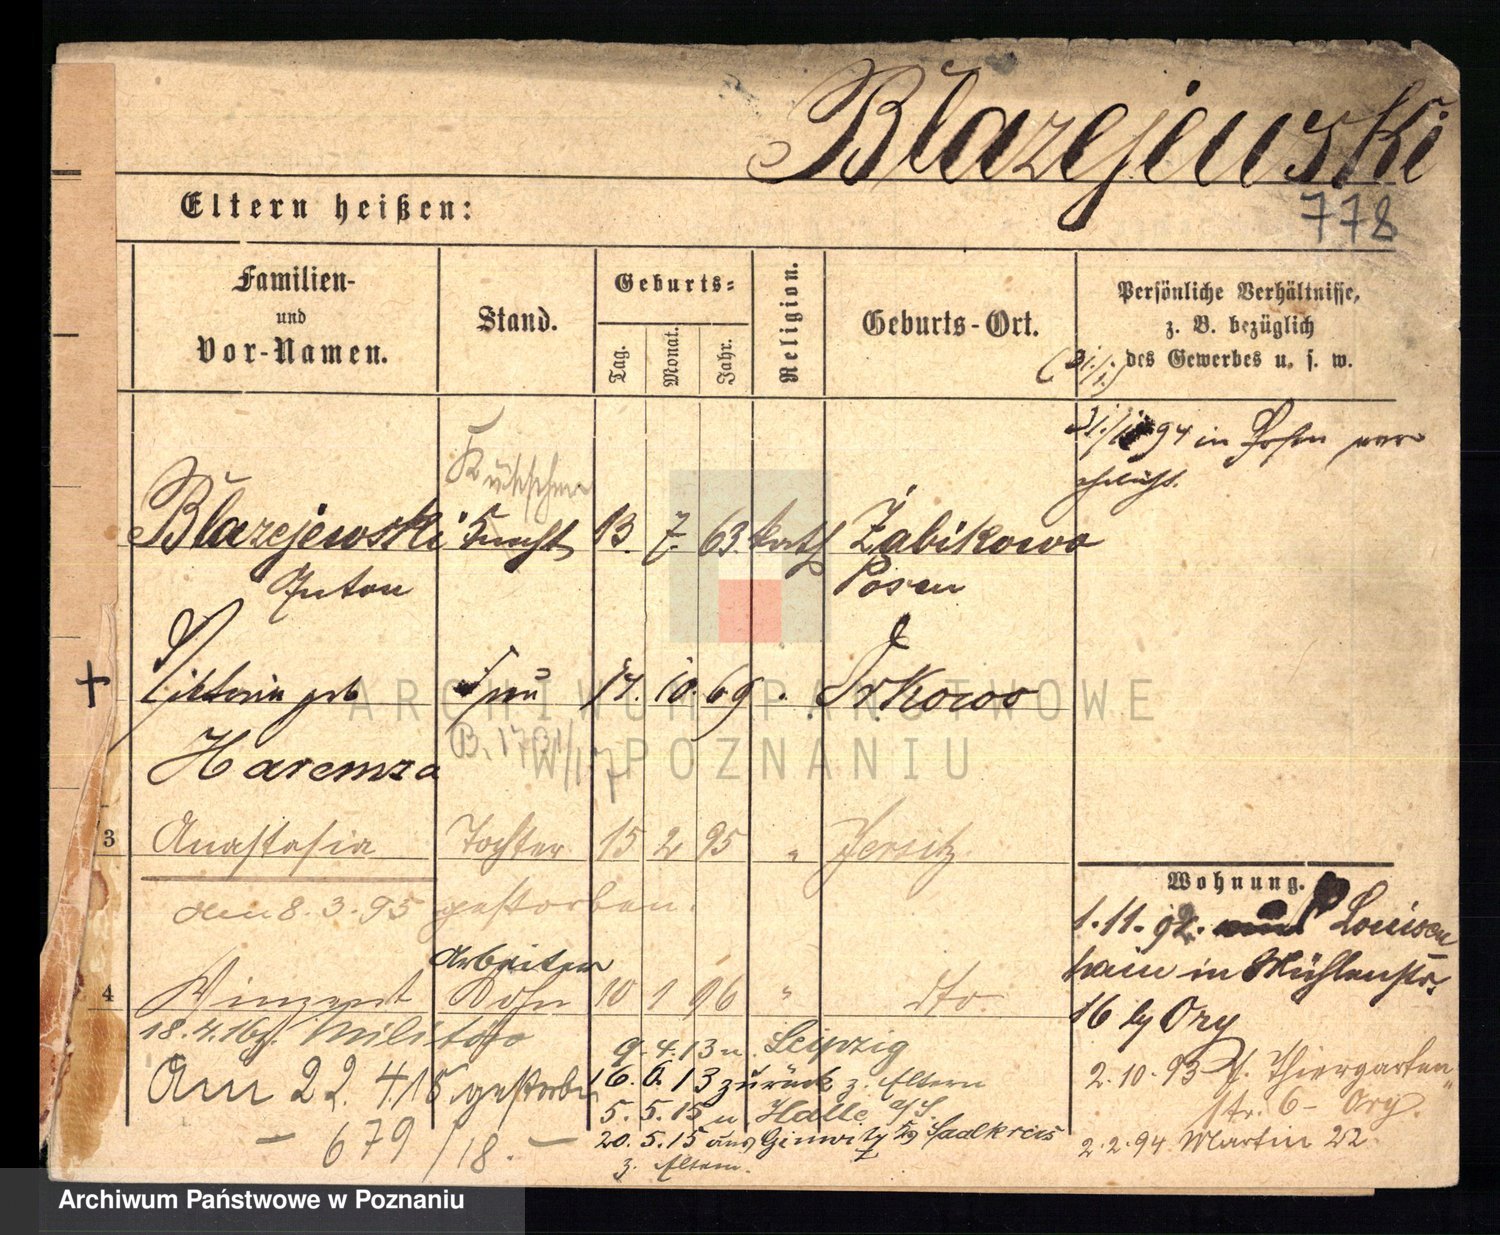 Blazejewski
778
Eltern heißen:
Familien-
und
Vor-Namen.
Stand.
Geburts-
Tag.
Monat.
Jahr.
Religion.
Geburts-Ort.
Persönliche Verhältnisse,
z. B. bezüglich
des Gewerbes u. s. w.
94 in Posen
Kutscher
Blazejewski Knecht 13. 7. 63. kath Żabikowo
Anton Posen
Viktoria geb Frau 17. 10. 69 Srkowo
Haremza
3 Anastasia Tochter 15 2 95 " Jersitz
den 8. 3. 95 gestorben.
Arbeiter
4 Vinzent Sohn 10 1 96 " dto
18. 4. 16 z. Militär
Am 22. 4 18 gestorben
679/18.
9. 4. 13 n. Leipzig
16. 6. 13 zurück z. Eltern
5. 5. 15 n Halle a/S.
20. 5. 15 aus Saalkreis
z. Eltern.
Wohnung.
1. 11. 92. Louisen
hain in Mühlenstr.
16 by Ory
2. 10. 93 Thiergarten
str. 6 - Ory.
2. 2. 94 Martin 22
ARCHIWUM PAŃSTWOWE
W POZNANIU
Archiwum Państwowe w Poznaniu